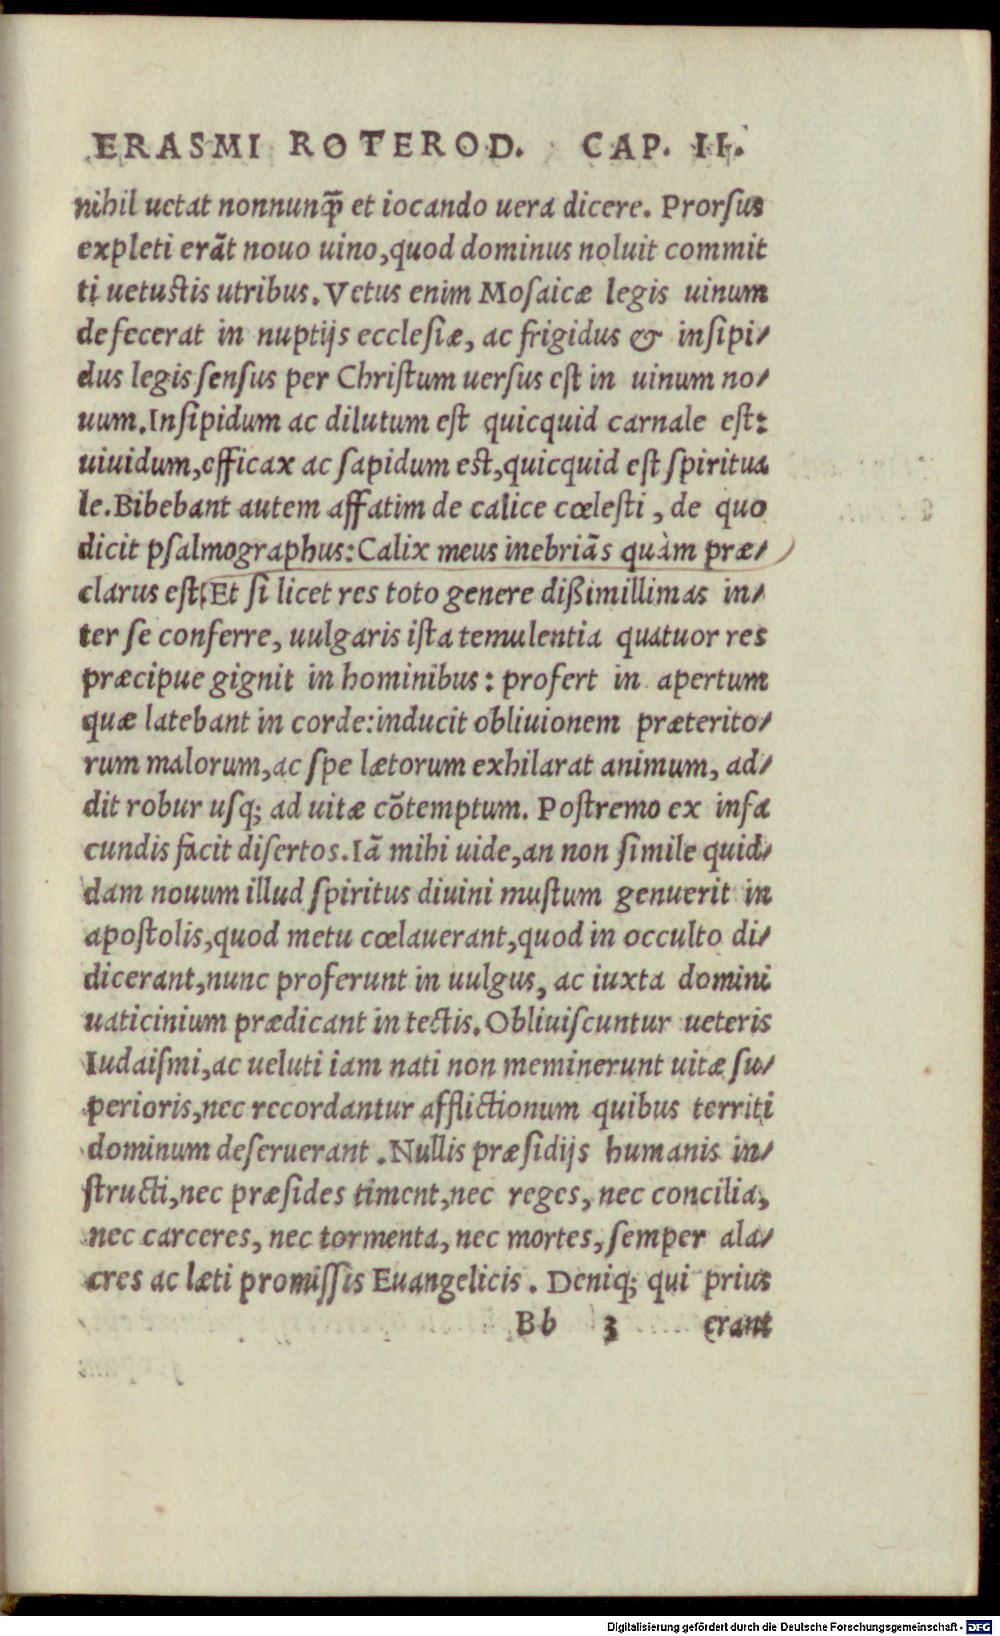 ERASMI ROTEROD. CAP. II.
nihil uetat nonnunq̃ et iocando uera dicere. Prorſus
expleti erãt nouo uino,quod dominus noluit commit
ti uetuſtis utribus. Vetus enim Moſaicæ legis uinum
defecerat in nuptijs eccleſiæ, ac frigidus & inſipi/
dus legis ſenſus per Chriſtum uerſus eſt in uinum no/
uum. Inſipidum ac dilutum eſt quicquid carnale eſt:
uiuidum,efficax ac ſapidum eſt,quicquid eſt ſpiritua
le. Bibebant autem affatim de calice cœleſti, de quo
dicit pſalmographus: Calix meus inebriãs quàm præ/
clarus eſt. Et ſi licet res toto genere dißimillimas in/
ter ſe conferre, uulgaris iſta temulentia quatuor res
præcipue gignit in hominibus: profert in apertum
quæ latebant in corde: inducit obliuionem præterito/
rum malorum,ac ſpe lætorum exhilarat animum, ad/
dit robur uſq; ad uitæ cõtemptum. Poſtremo ex infa
cundis facit diſertos. Iã mihi uide,an non ſimile quid/
dam nouum illud ſpiritus diuini muſtum genuerit in
apoſtolis,quod metu cœlauerant,quod in occulto di/
dicerant,nunc proferunt in uulgus, ac iuxta domini
uaticinium prædicant in tectis. Obliuiſcuntur ueteris
Iudaiſmi,ac ueluti iam nati non meminerunt uitæ ſu/
perioris,nec recordantur afflictionum quibus territi
dominum deſeruerant. Nullis præſidijs humanis in/
ſtructi,nec præſides timent,nec reges, nec concilia,
nec carceres, nec tormenta, nec mortes, ſemper ala/
cres ac læti promiſſis Euangelicis. Deniq; qui prius
Bb 3 erant
Digitalisierung gefördert durch die Deutsche Forschungsgemeinschaft - DFG